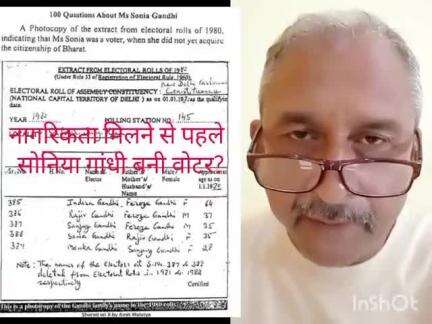 100 Questions About Ms Sonia Gandhi
A Photocopy of the extract from electoral rolls of 1980,
indicating that Ms Sonia was a voter, when she did not yet acquire
the citizenship of Bharat.
EXTRACT FROM ELECTORAL ROLLS OF
(Under Rule 33 of Registration of Electoral Rules, 1960)
New Delhi
ELECTORAL ROLL OF ASSEMBLY CONSTITUENCY :
(NATIONAL CAPITAL TERRITORY OF DELHI) as on 01.01
date.
YEAR 1980 POLLING STATION NO. 145
नागरिकता मिलने से पहले
सोनिया गांधी बनी वोटर?
Name
385 Indira Gandhi Feroze Gandhi F 64
386 Rajiv Gandhi Feroze Gandhi M 37
387 Sanjay Gandhi Feroze Gandhi M 35
388 Sonia Gandhi Rajiv Gandhi F
389 Menka Gandhi Sanjay Gandhi F
Note: The names of the Electors at S.No. 387 & 388
deleted from Electoral Rolls in 1981 & 1982
respectively
Certified
This is a photocopy of the Gandhi family's name in the 1980
Shared on X by Amit Malviya
InShOt